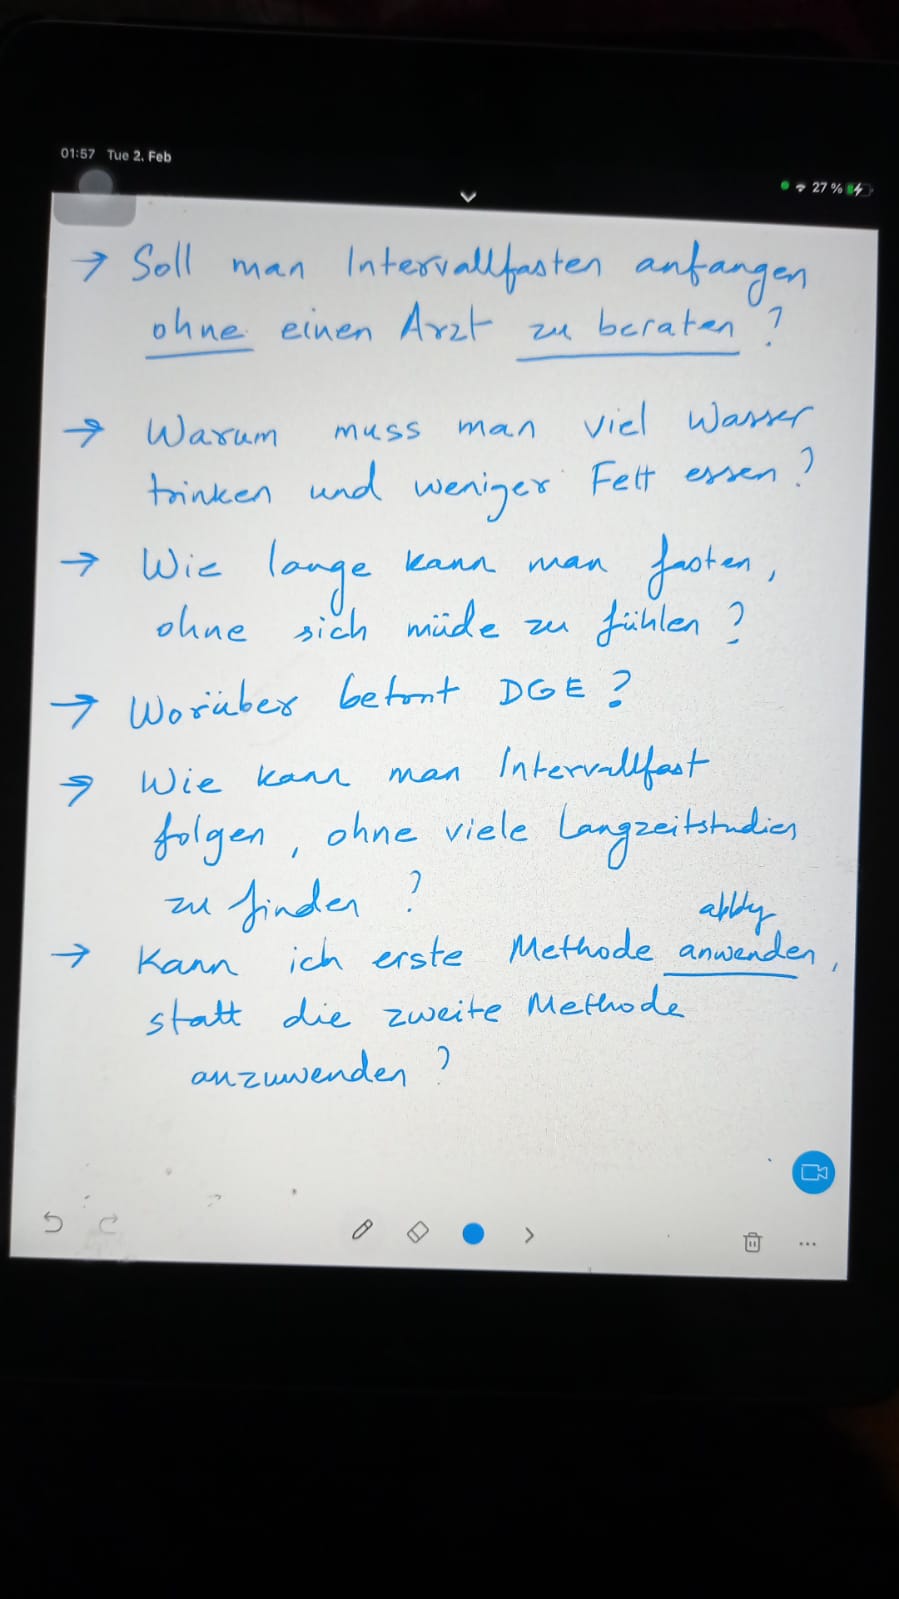 01:57 Tue 2. Feb
27 %
→ Soll man Intervallfasten anfangen
ohne einen Arzt zu beraten ?
→ Warum muss man viel Wasser
trinken und weniger Fett essen ?
→ Wie lange kann man fasten,
ohne sich müde zu fühlen ?
→ Worüber betont DGE ?
→ Wie kann man Intervallfast
folgen, ohne viele Langzeitstudien
zu finden ?
apply
→ Kann ich erste Methode anwenden,
statt die zweite Methode
anzuwenden ?